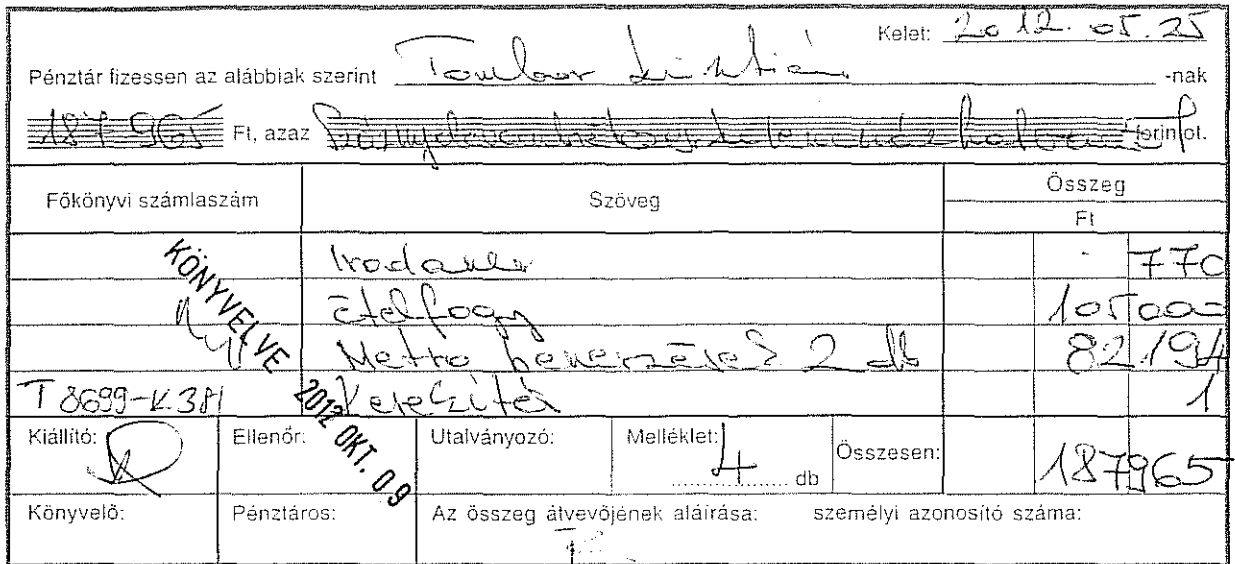 Kelet: 2012. 05. 25
Pénztár fizessen az alábbiak szerint -nak
187 965 Ft, azaz forintot.
Főkönyvi számlaszám Szöveg Összeg
Ft
770
Ételfogy 105000
Metro 2 db 82.194
T 8699-K381 Kerekítés 1
KÖNYVELVE 2012 OKT. 09
Kiállító: Ellenőr: Utalványozó: Melléklet: 4 db Összesen: 187965
Könyvelő: Pénztáros: Az összeg átvevőjének aláírása: személyi azonosító száma: